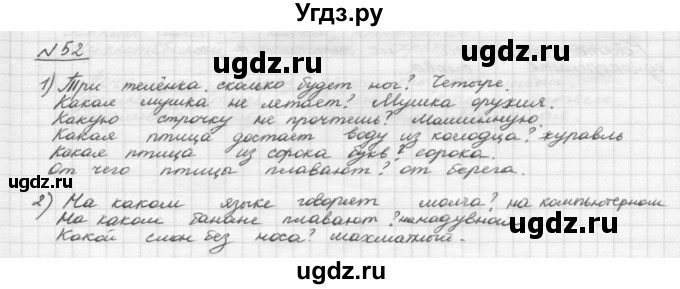 Угдз.ру
№52
1) Три телёнка, сколько будет ног? Четыре.
Какая мушка не летает? Мушка оружия.
Какую строчку не прочтешь? Машинную.
Какая птица достает воду из колодца? журавль
Какая птица из сорока букв? сорока.
От чего птицы плавают? от берега.
2) На каком языке говорят молча? на компьютерном
На каком банане плавают? на надувном
Какой слон без носа? шахматный.
ugdz.ru
ugdz.ru
ugdz.ru
ugdz.ru
ugdz.ru
ugdz.ru
ugdz.ru
ugdz.ru
ugdz.ru